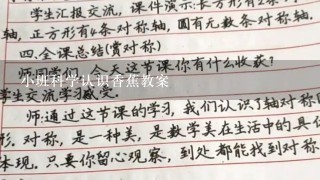 学生汇报交流,课件演示:长方形有2条
轴,正方形有4条对称轴,圆有无数条对称轴.
四.全课总结(赏对称)
师:同学们,今天这节课你有什么收获?
小班科学认识香蕉教案
学生交流学习感受.
师:通过这节课的学习,我们认识了轴对称图
形.对称,是一种美,是数学美在生活中的具体
体现.只要你留心观察,到处都能找到对称